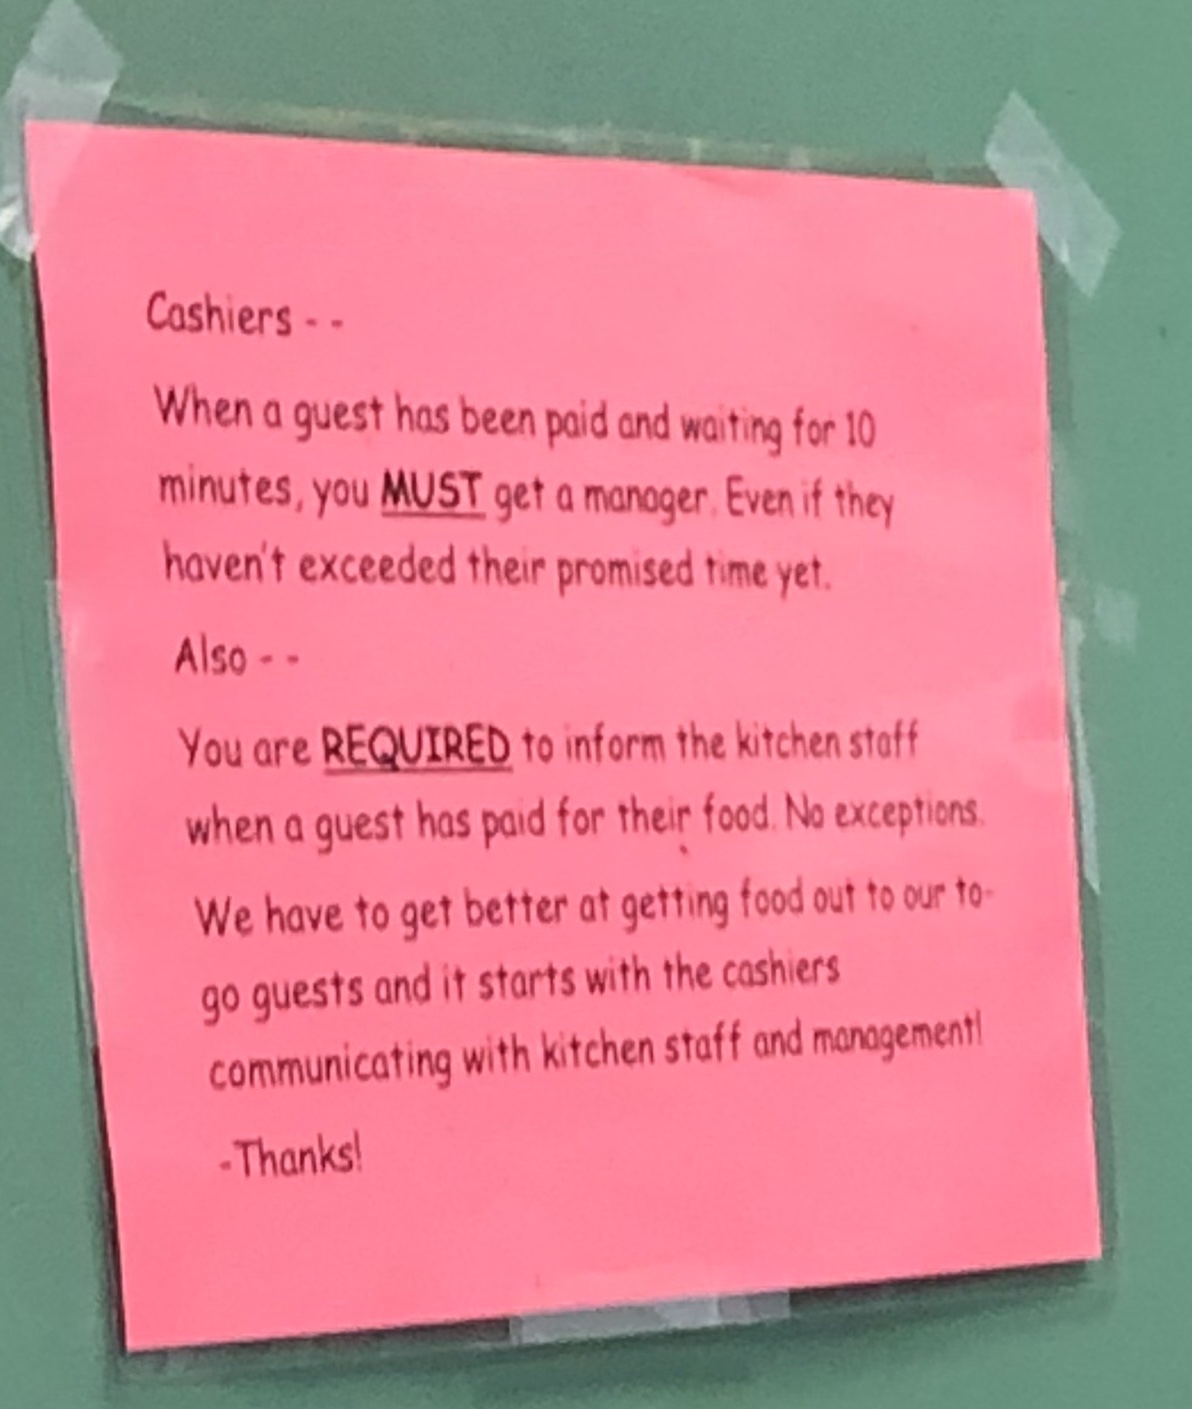 Cashiers - -
When a guest has been paid and waiting for 10
minutes, you MUST get a manager. Even if they
haven't exceeded their promised time yet.
Also - -
You are REQUIRED to inform the kitchen staff
when a guest has paid for their food. No exceptions.
We have to get better at getting food out to our to-
go guests and it starts with the cashiers
communicating with kitchen staff and management!
-Thanks!